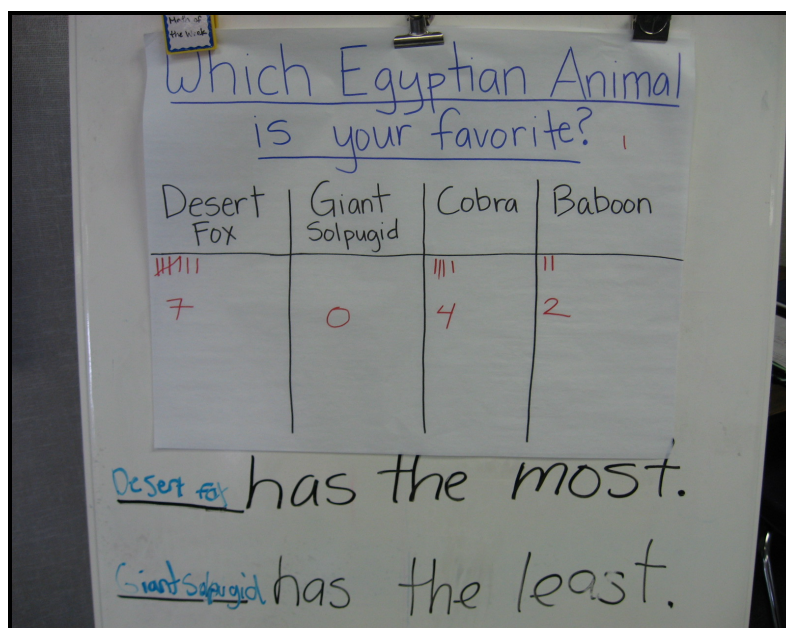 Math of
the Week
Which Egyptian Animal
is your favorite?
Desert Fox
Giant Solpugid
Cobra
Baboon
7
0
4
2
Desert fox has the most.
Giant Solpugid has the least.